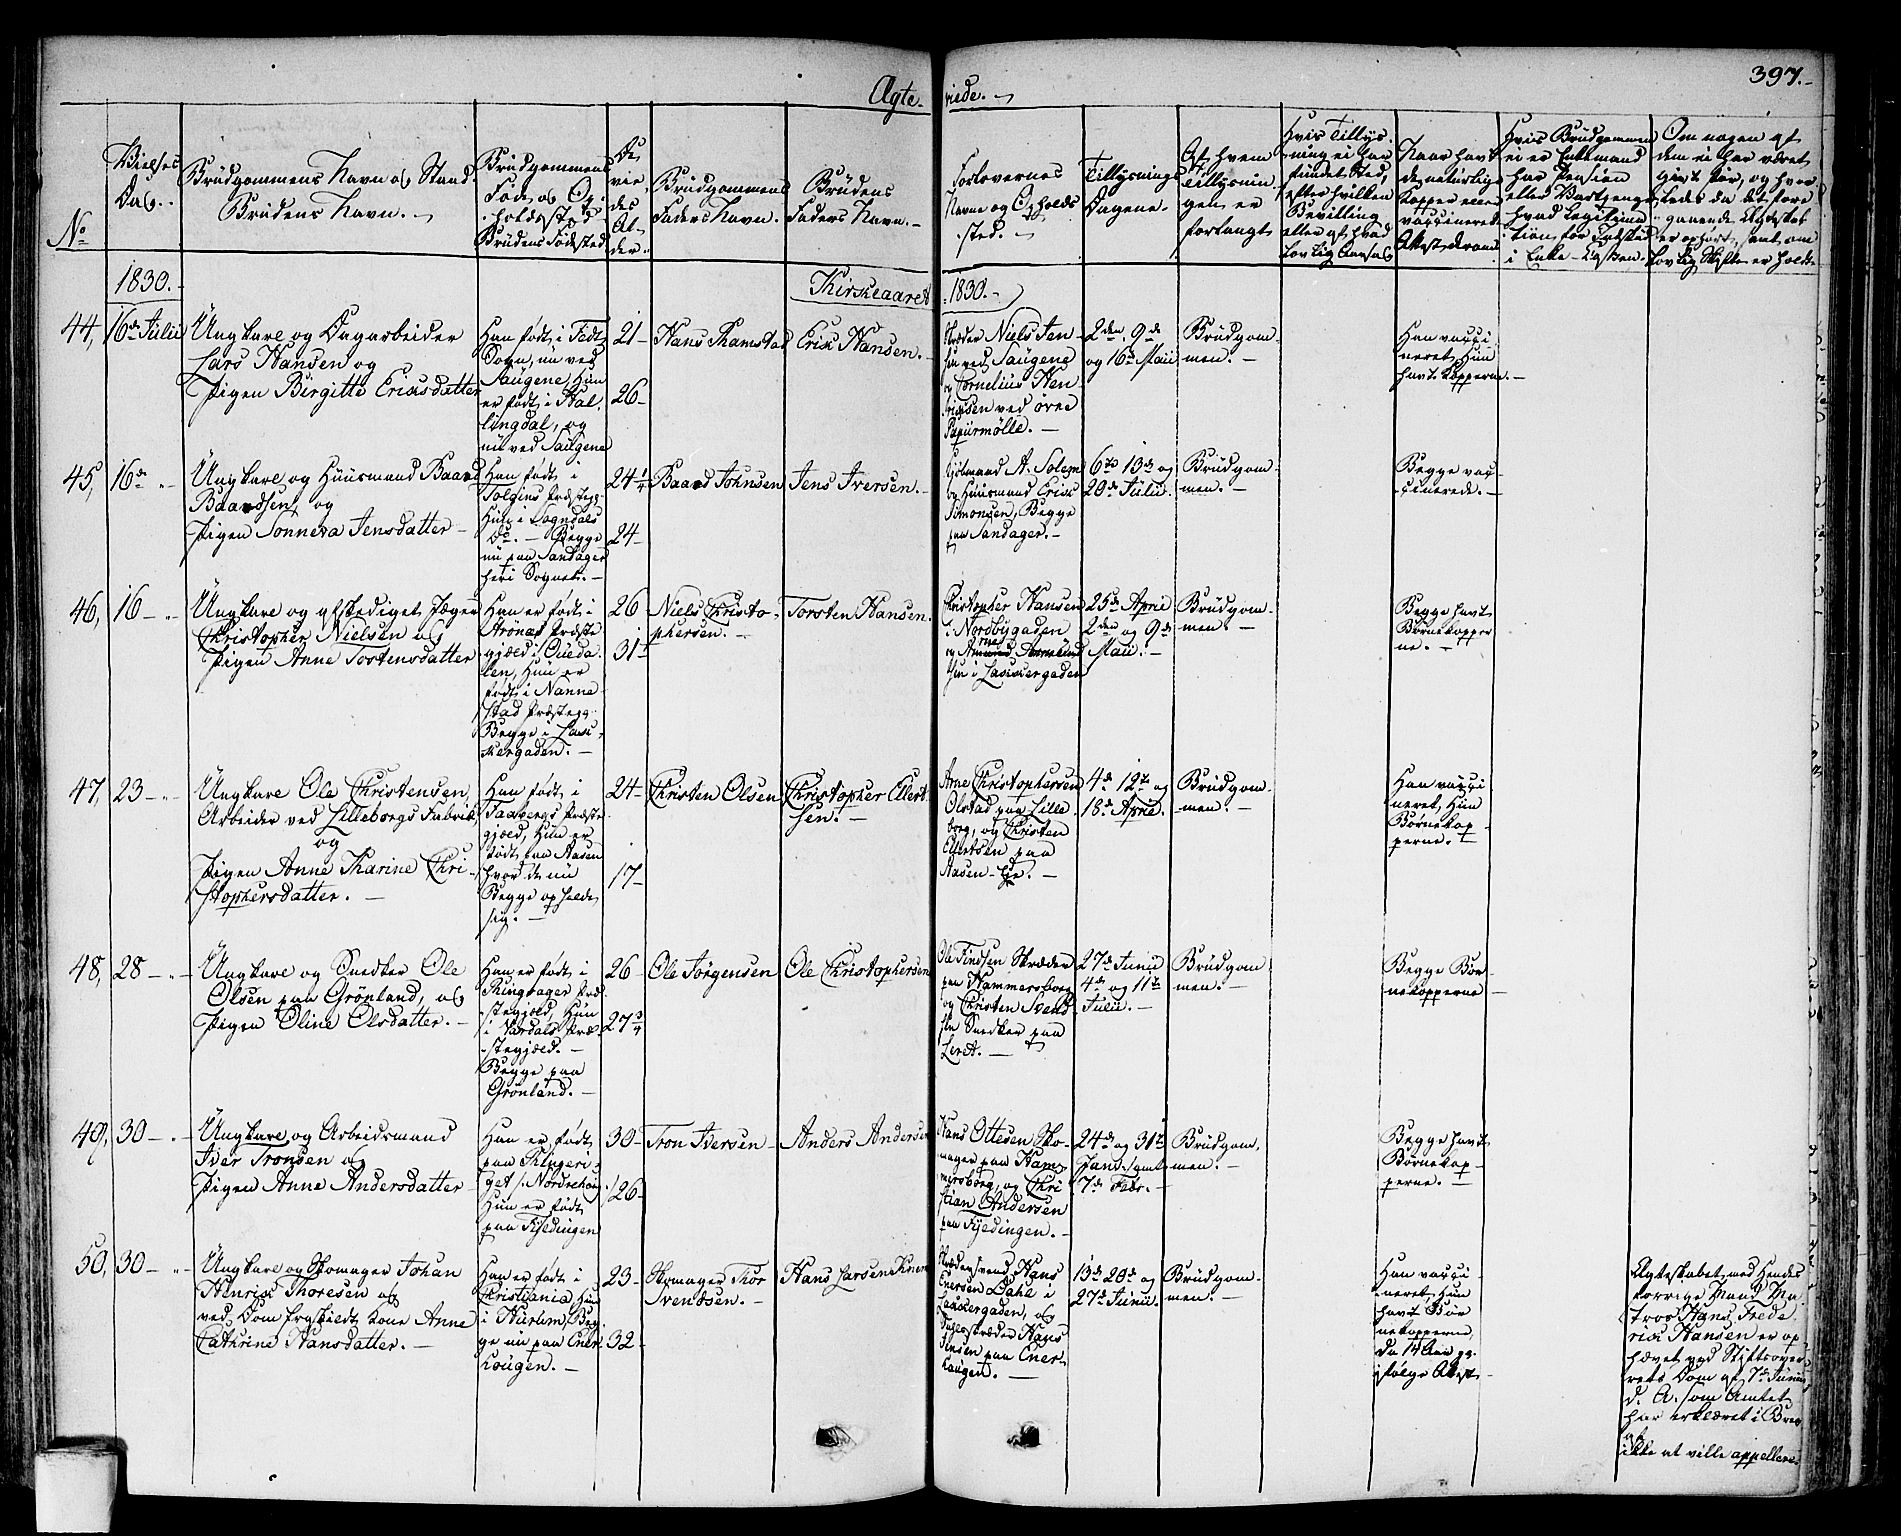 397.
Ægteviede.
No
Vielses Dag.
Brudgommens Navn og Stand.
Brudens Navn.
Brudgommens
Føde og Op-
holdssted
Brudens Fødested
De
vie
des
Al-
der.
Brudgommens
Faders Navn.
Brudens
Faders Navn.
Forlovernes
Navne og Opholds
sted.
Tillysnings
Dagene.
Af hvem
Tillysnin-
gen er
forlangt
Hvis Tillys-
ning ei har
fundet Sted,
efter hvilken
Bevilling
eller af hvad
lovlig Aarsag
Naar havt
de naturlige
Kopper eller
vaccinerede
Attest derom
Hvis Brudgommen
ei er Enkemand
har Pension
eller Vartpenge
hvad Legitima
tion for Indskud
i Enke-Kassen.
Om nogen af
dem ei har været
givt før, og hvor
ledes da det fore
gaaende Ægteskab
er ophørt, samt om
lovlig Skifte er holdt
1830.
Kirkeaaret 1830.
44, 16de Julii
Ungkarl og Dagarbeider
Lars Hansen og
Pigen Birgitte Eriksdatter
Han født i Fedt
Sogn, nu ved
Saugene, Hun
er født i Hal-
lingdal, og
nu ved Saugene
21
26
Hans Thamstad
Erik Hansen.
Niels Jen-
sen ved Saugene
og Cornelius Hen-
richsen ved øvre
Papiirmølle.
2den, 9de
og 16de Maii
Brudgom-
men.
Han vacci
neret, Hun
havt Kopperne.
45, 16de
Ungkarl og Huusmand Baard
Baardsen, og
Pigen Sonneva Jensdatter
Han født i
Solgens Præsteg.
Hun i Sogndals
Do. Begge
nu paa Sandager
her i Sognet.
24 1/4
24
Baard Johnsen
Jens Iversen.
A. Solem
og Huusmand Erik
Simonsen, Begge
paa Sandager.
6te 13de og
20de Julii.
Brudgom-
men.
Begge vac-
cinerede.
46, 16
Ungkarl og afskediget Jæger
Christopher Nielsen og
Pigen Anne Tostensdatter
Han er født i
Præste
gjæld i Oueda
len, Hun er
født i Nanne-
stad Præsteg.
Begge i Lak-
kergaden.
26
31
Niels Christo-
phersen.
Torsten Hansen.
Christopher Hansen
i Nordbygaden
og
sen i Lakkergaden
25de April
2den og 9de
Maii.
Brudgom-
men.
Begge havt
Børnekopper
ne.
47, 23
Ungkarl Ole Christensen,
Arbeider ved Lilleborgs Fabrik,
og
Pigen Anne Karine Chri-
stophersdatter.
Han født i
Faabergs Præste
gjæld, Hun er
født paa Aasen
hvor de nu
Begge opholde
sig.
24
17
Christen Olsen
Christopher Ellert-
sen.
Arne Christophersen
Olstad paa Lille
borg, og Christen
Ellertsen paa
Aasen
4de 12te og
18de April.
Brudgom-
men.
Han vacci
neret, Hun
Børnekop-
perne.
48, 28
Ungkarl og Snedker Ole
Olsen paa Grønland, og
Pigen Oline Olsdatter.
Han er født i
Ringsager Præ
stegjeld, Hun
i Vardals Præ-
stegjæld.
Begge paa
Grønland.
26
27 3/4
Ole Jørgensen
Ole Christophersen
Ole Findsen Skræder
paa Hammersborg
og Christen Svend
sen Snedker paa
Leret.
27de Junii
4de og 11te
Julii.
Brudgom
men.
Begge Bør-
nekopperne
49, 30
Ungkarl og Arbeidsmand
Iver Tronsen og
Pigen Anne Andersdatter
Han er født
paa Ringeri-
get i Nordrehoug
Hun er født
paa Fjerdingen
30
26
Tron Iversen
Anders Andersen
Hans Ottesen Sko-
mager paa Ham-
mersborg, og Chri
stian Andersen
paa Fjerdingen.
24de og 31te
Jan. samt
7de Febr.
Brudgom,
men.
Begge havt
Børnekop-
perne.
50, 30
Ungkarl og Skomager Johan
Henrik Thoresen og
ved Dom fraskildt Kone Anne
Cathrine Hansdatter.
Han er født i
Christiania Hun
i Hurum, Beg-
ge nu paa Ener-
hougen.
23
32
Skomager Thor
Svendsen.
Hans Larsen
Hans
Enersen Dahl i
Lakkergaden, og
Hans
Jensen paa Ener-
hougen.
13de 20de og
27de Junii.
Brudgom-
men.
Han vacci
neret, Hun
havt Bør
nekopperne,
da 14 Aar gl.
ifølge Attest
Ægteskabet med Hendes
forrige Mand Ma
tros Hans Frede
rich Hansen er op
hævet ved Stiftsover-
rets Dom af 7de Junii
d. A. som Amtet
har erklæret i Brev
ikke at ville appellere.